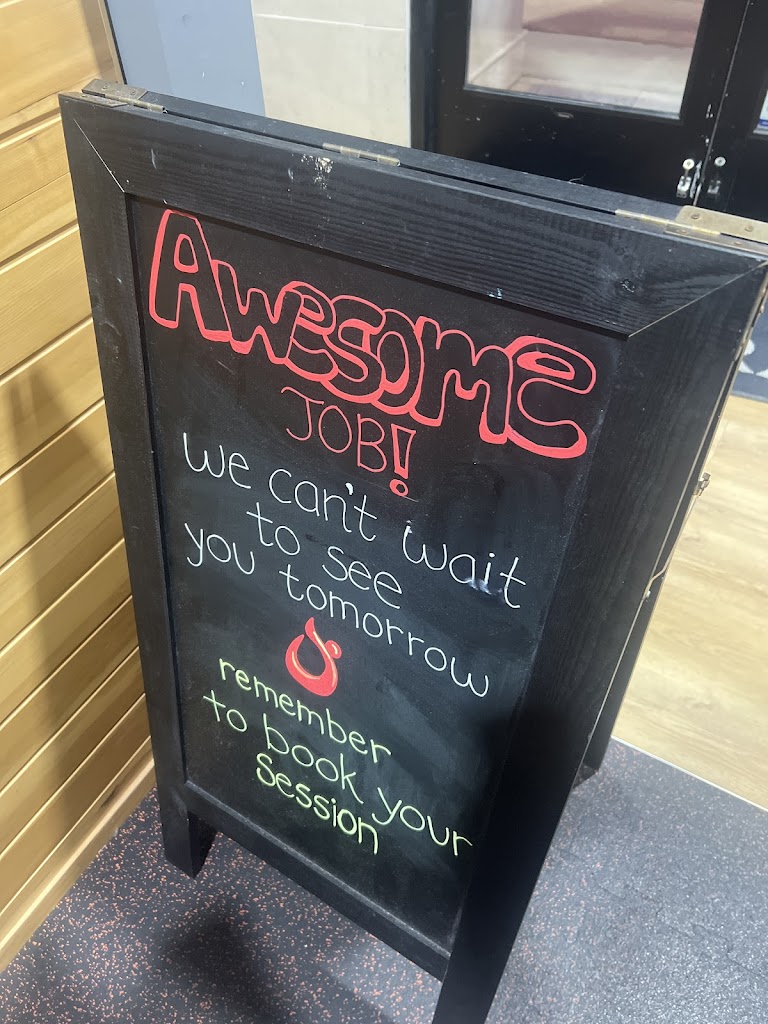 AWeSOMe
JOB!
we can't wait
to see
you tomorrow
remember
to book your
Session